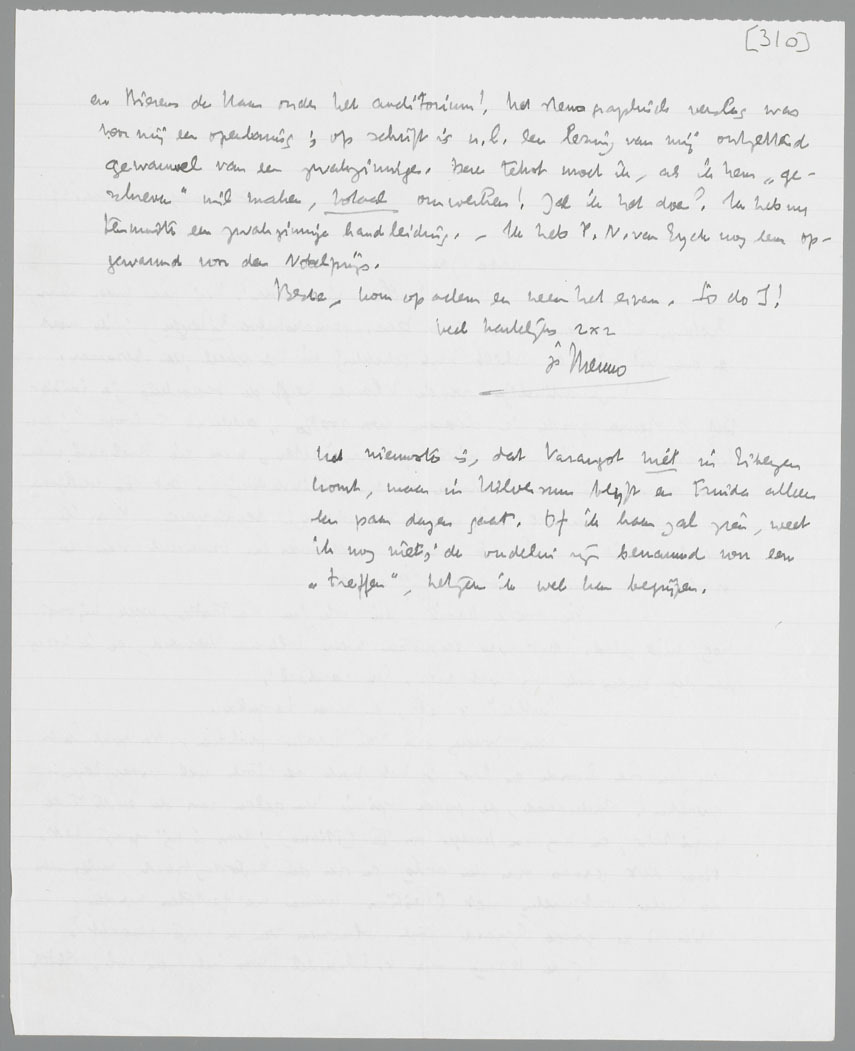 [310]
en Nierens de Haan onder het auditorium! Het stenographisch verslag was
voor mij een openbaring; op schrift is n.l. een lezing van mij ontzettend
gewauwel van een zwakzinnige. Dezen tekst moet ik, als ik hem „ge-
schreven" wil maken, totaal omwerken! Zal ik het doen? Ik heb nu
tenminste een zwakzinnige handleiding. – Ik heb P.N. van Eyck nog een op-
gewarmd voor den Nobelprijs.
Beste, kom op adem en neem het ervan. So do I!
veel hartelijks 2x2
je Menno
Het nieuwste is, dat Varangot niét in Eibergen
komt, maar in Hilversum blijft en Truida alleen
een paar dagen gaat. Of ik haar zal zien, weet
ik nog niet; de oudelui zijn benauwd voor een
„treffen", hetgeen ik wel kan begrijpen.